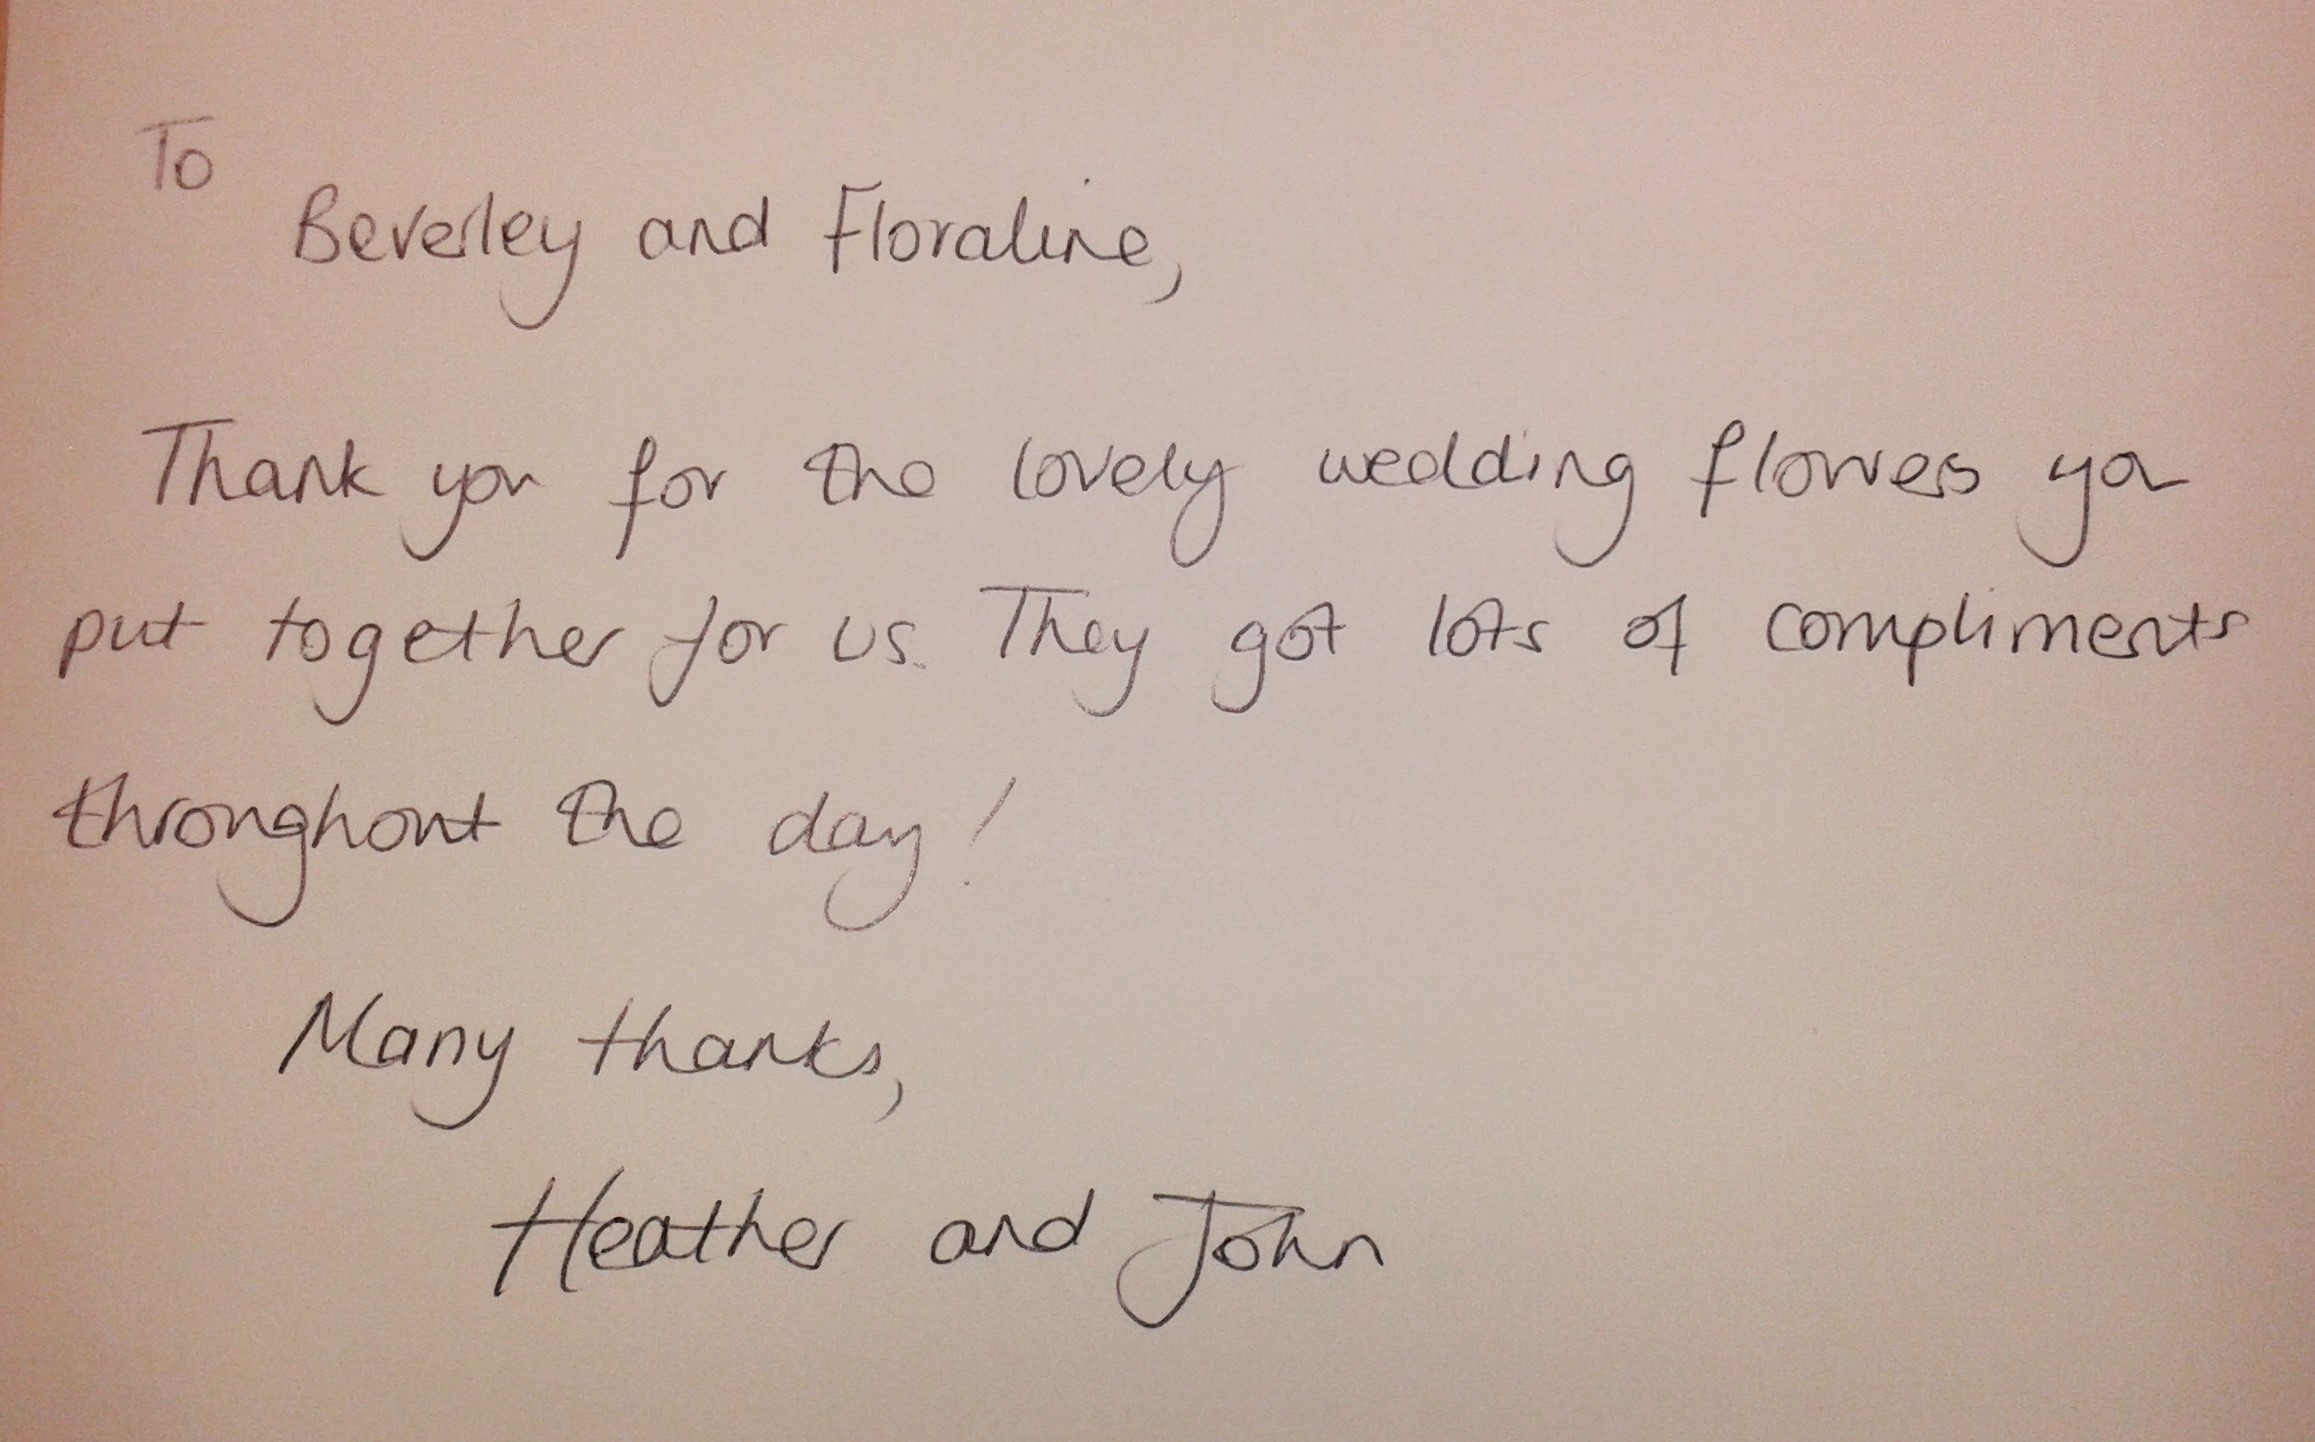 To
Beverley and Floraline,
Thank you for the lovely wedding flowers you
put together for us. They got lots of compliments
throughout the day!
Many thanks,
Heather and John